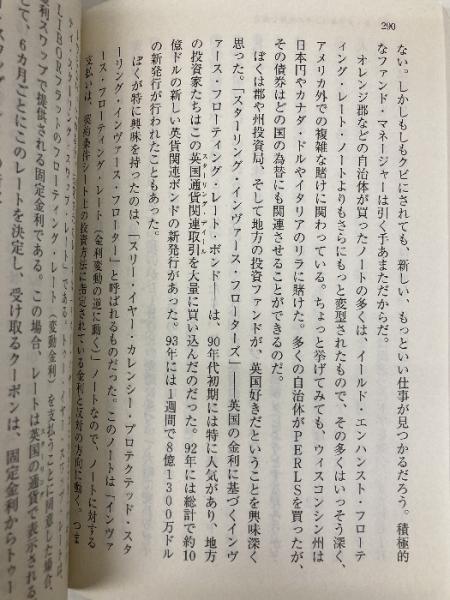 290
ない。しかしもしもクビにされても、新しい、もっといい仕事が見つかるだろう。積極的
なファンド・マネージャーは引く手あまただからだ。
オレンジ郡などの自治体が買ったノートの多くは、イールド・エンハンスト・フローテ
ィング・レート・ノートよりもさらにもっと変型されたもので、その多くはいっそう深く、
アメリカ外での複雑な賭けに関わっている。ちょっと挙げてみても、ウィスコンシン州は
日本円やカナダ・ドルやイタリアのリラに賭けた。多くの自治体がPERLSを買ったが、
その債券はどの国の為替にも関連させることができるのだ。
ぼくは郡や州投資局、そして地方の投資ファンドが、英国好きだということを興味深く
思った。「スターリング・インヴァース・フローターズ」――英国の金利に基づくインヴ
ァース・フローティング・レート・ボンド――は、90年代初期には特に人気があり、地方
の投資家たちはこの英国通貨関連取引を大量に買い込んだのだった。92年には総計で約10
スターリング・ディール
億ドルの新しい英貨関連ボンドの新発行があった。93年には1週間で8億1300万ドル
の新発行が行われたこともあった。
ぼくが特に興味を持ったのは、「スリー・イヤー・カレンシー・プロテクテッド・スタ
ーリング・インヴァース・フローター」と呼ばれるものだった。このノートは「インヴァ
ース・フローティング・レート（金利変動の逆に動く）」ノートなので、ノートに対する
支払いは、契約条件シート上の投資方法に指定されている金利と反対の方向に動く。つま
LIBORフラットのフローティング・レート（変動金利）を支払うことに同意した場合、
金利スワップで提供される固定金利である。この場合、レートは英国の通貨で表示される
て、6カ月ごとにこのレートを決定し、受け取るクーポンは、固定金利からトゥー